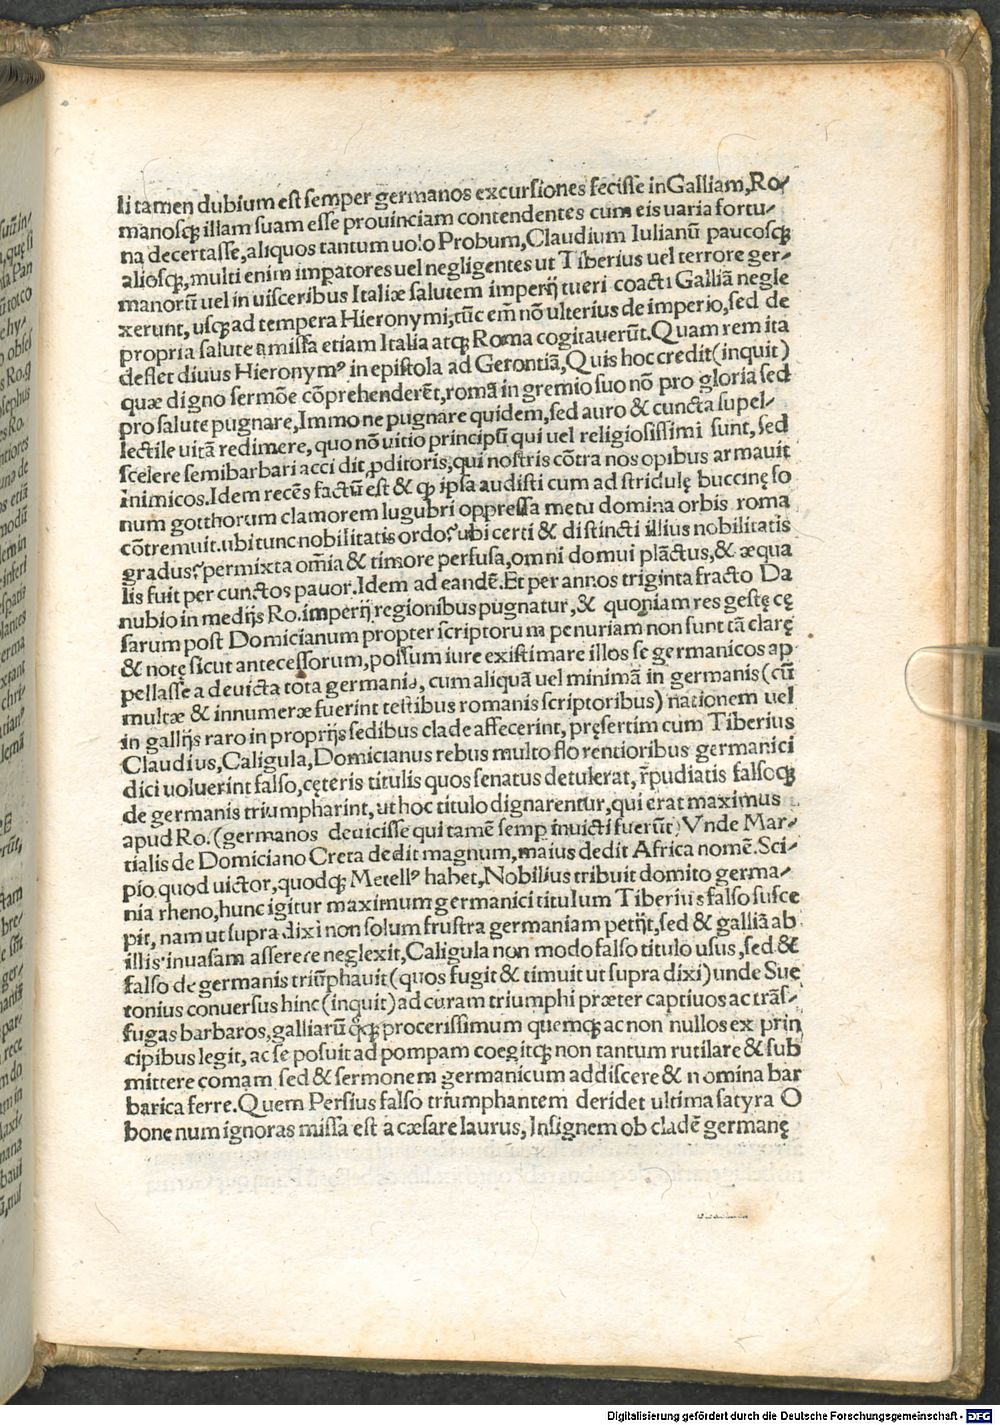 li tamen dubium est semper germanos excursiones fecisse in Galliam, Ro⸗
manosqꝫ illam suam esse prouinciam contendentes cum eis uaria fortu⸗
na decertasse, aliquos tantum uolo Probum, Claudium Iulianū paucosqꝫ
aliosqꝫ, multi enim impatores uel negligentes ut Tiberius uel terrore ger⸗
manorū uel in uisceribus Italiæ salutem imperij tueri coacti Galliā negle
xerunt, usqꝫ ad tempera Hieronymi, tūc em̄ nō ulterius de imperio, sed de
propria salute amissa etiam Italia atqꝫ Roma cogitauerūt. Quam rem ita
deflet diuus Hieronymꝰ in epistola ad Gerontiā, Quis hoc credit (inquit)
quæ digno sermōe cōprehenderēt, romā in gremio suo nō pro gloria sed
pro salute pugnare, Immo ne pugnare quidem, sed auro & cuncta supel⸗
lectile uitā redimere, quo nō uitio principū qui uel religiosissimi sunt, sed
scelere semibarbari acci dit, ꝓditoris, qui nostris cōtra nos opibus armauit
inimicos. Idem recēs factū est & qꝫ ipsa audisti cum ad stridulę buccinę so
num gotthorum clamorem lugubri oppressa metu domina orbis roma
cōtremuit. ubi tunc nobilitatis ordo? ubi certi & distincti illius nobilitatis
gradus? permixta om̄ia & timore perfusa, omni domui plāctus, & æqua
lis fuit per cunctos pauor. Idem ad eandē. Et per annos triginta fracto Da
nubio in medijs Ro. imperij regionibus pugnatur, & quoniam res gestę cę
sarum post Domicianum propter scriptoru m penuriam non sunt tā clarę
& notę sicut antecessorum, possum iure existimare illos se germanicos ap
pellasse a deuicta tota germania, cum aliquā uel minimā in germanis (cū
multæ & innumeræ fuerint testibus romanis scriptoribus) nationem uel
in gallijs raro in proprijs sedibus clade affecerint, pręsertim cum Tiberius
Claudius, Caligula, Domicianus rebus multo flo rentioribus germanici
dici uoluerint falso, cęteris titulis quos senatus detulerat, r̄pudiatis falsoqꝫ
de germanis triumpharint, ut hoc titulo dignarentur, qui erat maximus
apud Ro. (germanos deuicisse qui tamē semp inuicti fuerūt) Vnde Mar⸗
tialis de Domiciano Creta dedit magnum, maius dedit Africa nomē. Sci⸗
pio quod uictor, quodqꝫ Metellꝰ habet, Nobilius tribuit domito germa⸗
nia rheno, hunc igitur maximum germanici titulum Tiberius falso susce
pit, nam ut supra dixi non solum frustra germaniam petijt, sed & galliā ab
illis inuasam asserere neglexit, Caligula non modo falso titulo usus, sed &
falso de germanis triūphauit (quos fugit & timuit ut supra dixi) unde Sue
tonius conuersus hinc (inquit) ad curam triumphi præter captiuos ac trās⸗
fugas barbaros, galliarū qꝫ procerissimum quemqꝫ ac non nullos ex prin
cipibus legit, ac se posuit ad pompam coegitqꝫ non tantum rutilare & sub
mittere comam sed & sermonem germanicum addiscere & nomina bar
barica ferre. Quem Persius falso triumphantem deridet ultima satyra O
bone num ignoras missa est a cæsare laurus, Insignem ob cladē germanę
Digitalisierung gefördert durch die Deutsche Forschungsgemeinschaft - DFG